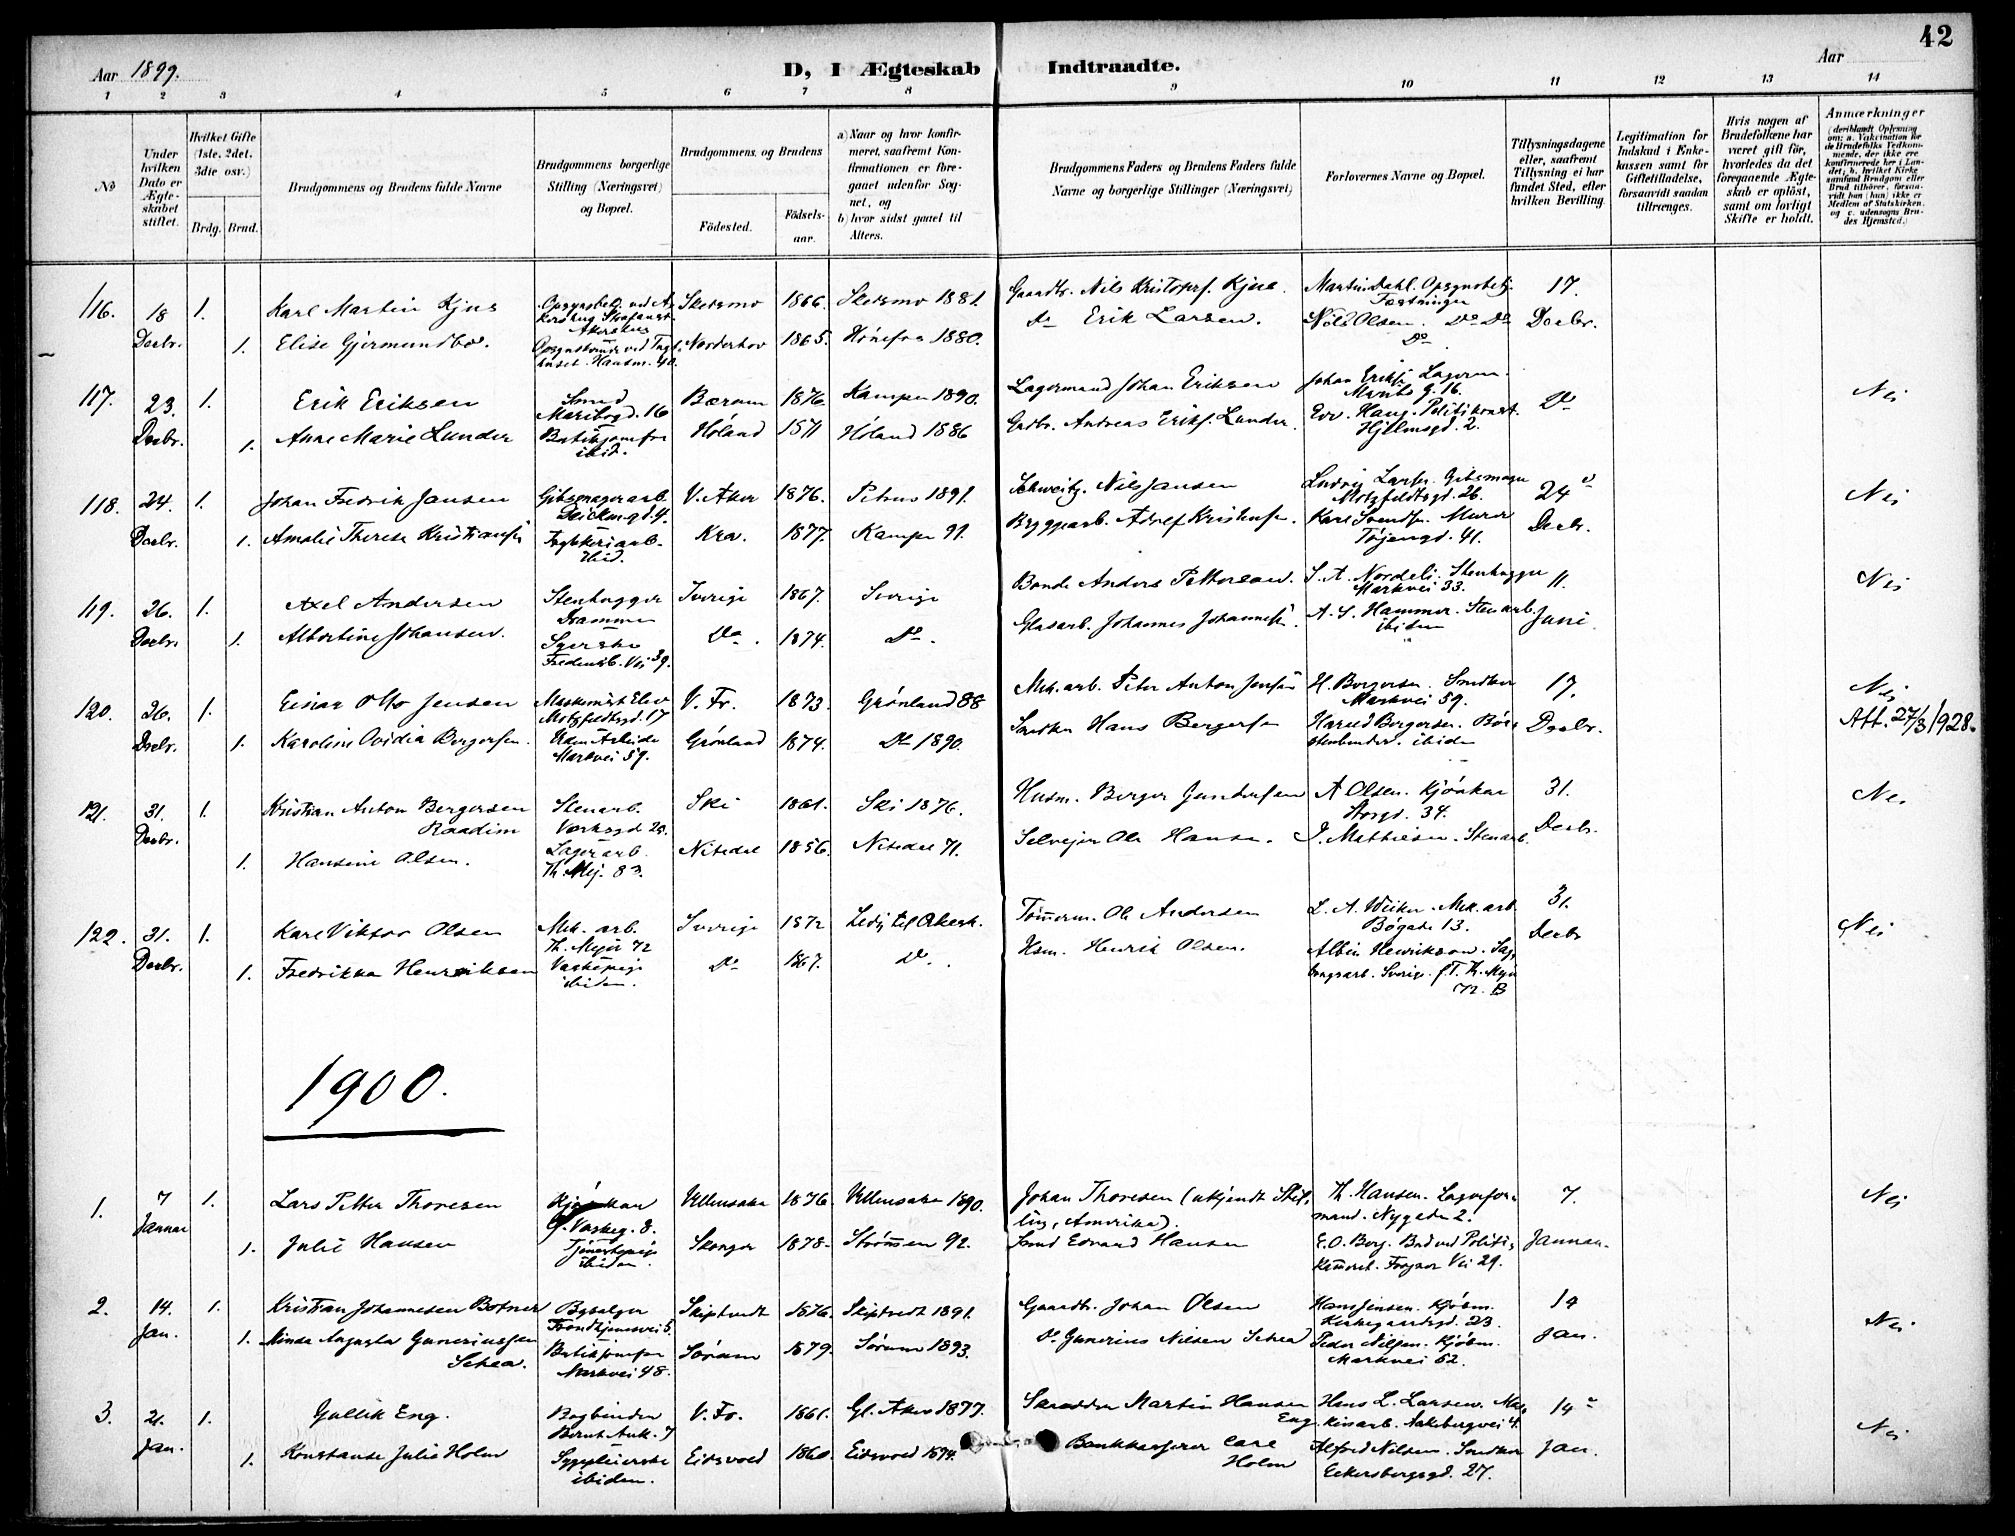 42
Aar 1899.
D, I Ægteskab Indtraadte.
Aar
1 2 3 4 5 6 7 8 9 10 11 12 13 14
No
Under hvilken Dato er Ægteskabet stiftet.
Hvilket Gifte (1ste, 2det, 3die osv.)
Brdg. Brud.
Brudgommens og Brudens fulde Navne
Brudgommens borgerlige Stilling (Næringsvei) og Bopæl.
Brudgommens og Brudens
Födested.
Födselsaar.
a) Naar og hvor konfirmeret, saafremt Konfirmationen er foregaaet udenfor Sognet, og
b) hvor sidst gaaet til Alters.
Brudgommens Faders og Brudens Faders fulde Navne og borgerlige Stillinger (Næringsvei)
Forlovernes Navne og Bopæl.
Tillysningsdagene eller, saafremt Tillysning ei har fundet Sted, efter hvilken Bevilling.
Legitimation for Indskud i Enkekassen samt for Giftetilladelse, forsaavidt saadan tiltrænges.
Hvis nogen af Brudefolkene har været gift för, hvorledes da det foregaaende Ægteskab er oplöst, samt om lovligt Skifte er holdt.
Anmærkninger
116. 18 Decbr. 1. Karl Martin Kjus Skedsmo 1866. Skedsmo 1881. Gaardbr. Nils Kristofs. Kjus Martin Dahl. Opsynsbetj. Fæstningen 17. Decbr.
1. Elise Gjermundbo. Norderhov 1865. Hønefos 1880. Do Erik Larsen. Nils Olsen. Do Do Do
117. 23. Decbr. 1. Erik Eriksen Smed Maribogd. 16 Bærum 1876. Kampen 1890. Lagermand Johan Eriksen Johan Eriks. Lagerm. Maribog. 16. Do Nei
1. Anne Marie Lunder Butikjomfru ibid. Høland 1871 Høland 1886 Gdbr. Andreas Eriks. Lunder. Edv. Haug. Politikonst. Hjelmsgd. 2.
118. 24. Decbr. 1. Johan Fredrik Jansen Gibsmagerarb. V. Aker 1876. Petrus 1891. Schweitz. Nils Jansen Ludvig Lars. Gibsmager Motzfeldtsgd. 26. 24 Decbr. Nei
1. Amalie Therese Kristians. ibid. Kra. 1877. Kampen 91. Bryggearb. Adolf Kristians. Karl Svends. Murer Tøjengd. 41.
119. 26. Decbr. 1. Axel Andersen Stenhugger Drammen Sverige 1867. Sverige Bonde Anders Petterson. S. A. Nordeli. Stenhugger Markvei 33. 11. Juni. Nei
1. Albertine Johansen. Syerske Fredensb. Vei 39. Do. 1874. Do. Glasarb. Johannes Johannes. A. S. Hammer. Stenarb. ibidem
120. 26. Decbr. 1. Einar Otto Jensen Maskinist Elev Motzfeldtsgd. 17 V. Fr. 1873. Grønland 88 Mek. arb. Peter Anton Jensen H. Bergersen. Snedker Markvei 59. 17. Decbr. Nei Att. 27/3 1928.
1. Karoline Ovidia Bergersen. Uden Arbeide Markvei 59. Grønland 1874. Do 1890. Snedker Hans Bergers. Harald Bergersen. Børstenbinder. ibidem
121. 31. Decbr. 1. Kristian Anton Bergersen Raadim Stenarb. Verksgd 20. Ski 1861. Ski 1876. Husm. Berger Gundersen A Olsen. Kjørekar Storgd. 34. 31. Decbr. Nei
1. Hansine Olsen. Lagerarb. Th. Mej. 83. Nitedal 1856. Nitedal 71. Selveier Ole Hansen. J. Mathisen. Stenarb.
122. 31. Decbr. 1. Karl Viktor Olsen Mek. arb. Th. Mejer 72 Sverige 1872 Tømmerm. Ole Andersen L. A. Weiker. Mek. arb. Bøgata 13. 31. Decbr Nei
1. Fredrikka Henriksen Vaskepige ibidem. Do 1867. Do. Hsm. Henrik Olsen. Albin Henrikson. Sverige. f. T. Th. Mejer 72. B
1900.
1. 7 Januar 1. Lars Petter Thoresen Kjørekar G. Vaskeg. 8. Ullensaker 1876. Ullensaker 1890. Johan Thoresen (ukjendt Stilling, Amerika). Th. Hansen. Lagerformand. Nygaden 2. 7. Januar. Nei
1. Julie Hansen Tjenestepige ibidem. Skonger 1878. Strømmen 92. Smed Edvard Hansen E. O. Berg. Bud ved Politikamret. Frogner Vei 29.
2. 14. Jan. 1. Kristian Johannesen Botner Bysælger Trondhjemsvei 5. Skiptvedt 1876. Skiptvedt 1891. Gaardbr. Johan Olsen Hans Jensen. Kjøbm. Kirkegaardsgd. 23. 14 Jan. Nei
1. Minda Augusta Guneriussen Schea. Butikjomfru Markvei 48. Sørum 1879. Sørum 1893. Do Gunerius Nilsen Schea Peder Nilsen. Kjøbm. Markvei 62.
3. 21. Jan. 1. Gullik Eng. Bogbinder Bernt Ank. 7 V. Fr. 1861. Gl. Aker 1877. Skrædder Martin Hansen Eng Hans L. Larsen. Maskinarb. Aakebergvei 4. 14 Jan. Nei
1. Konstanse Julie Holm Sygepleierske ibidem. Eidsvold 1860. Eidsvold 1874. Bankkasserer Carl Holm Alfred Nilsen. Snedker Eckersbergsgd. 27.